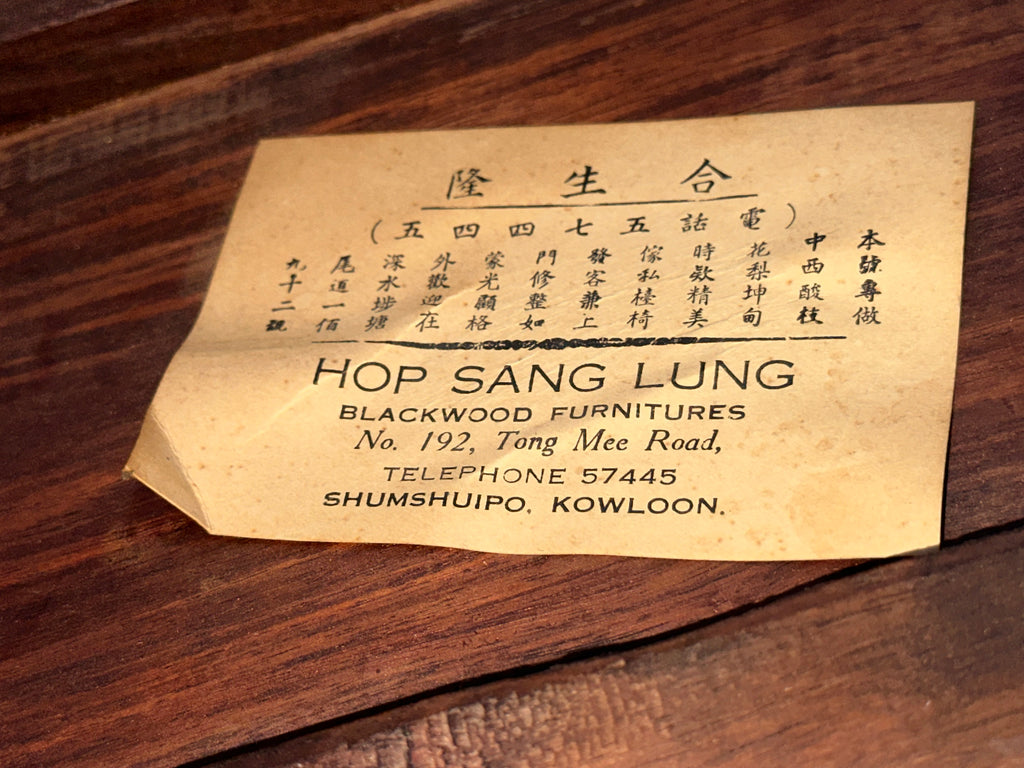 合生隆
(電話五七四四五)
本號專做
中西酸枝
花梨坤甸
時欵精美
傢私檯椅
發客兼上
門修整如
蒙光顧格
外歡迎在
深水埗塘
尾道一佰
九十二號
HOP SANG LUNG
BLACKWOOD FURNITURES
No. 192, Tong Mee Road,
TELEPHONE 57445
SHUMSHUIPO, KOWLOON.